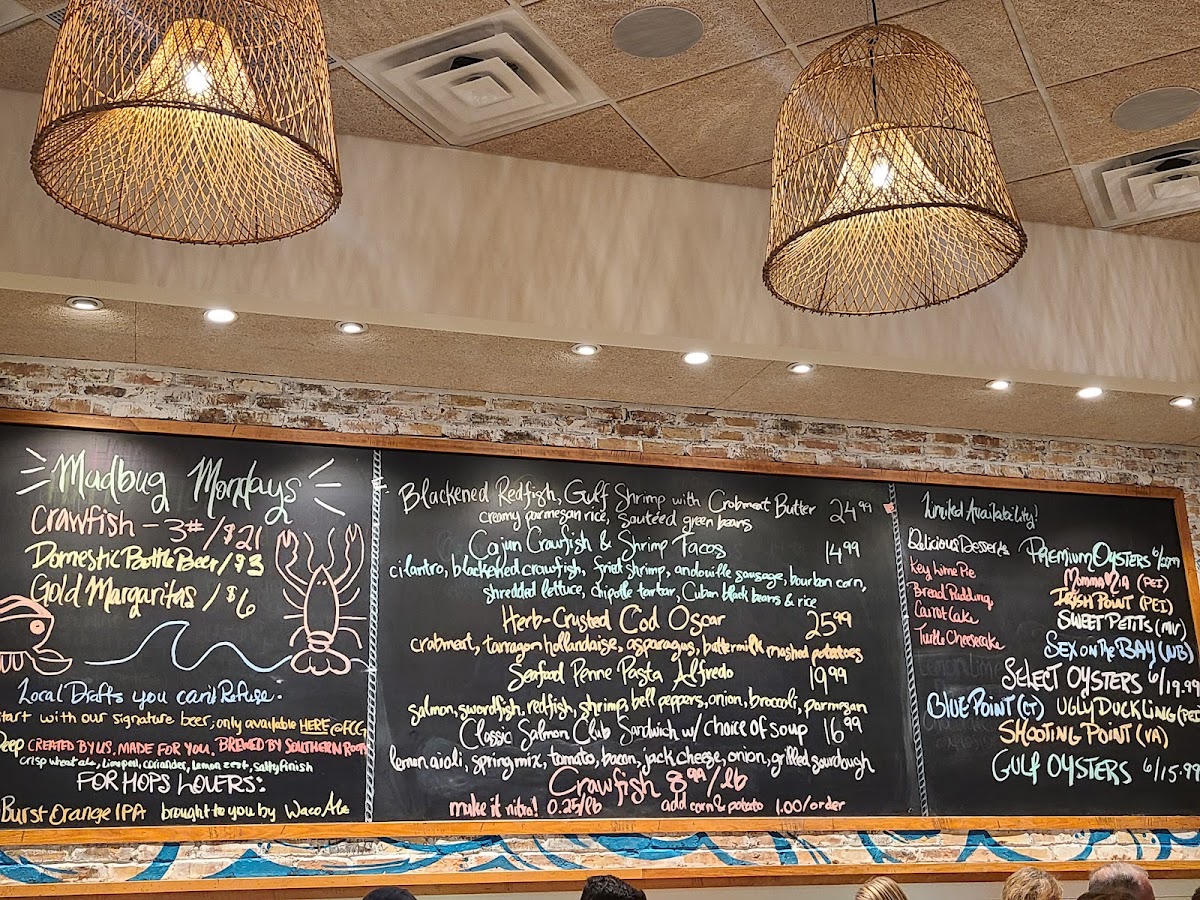 Mudbug Mondays
Crawfish - 3# / $21
Domestic Bottle Beer / $3
Gold Margaritas / $6
Local Drafts you can't Refuse.
start with our signature beer, only available HERE @ FCG
Deep CREATED BY US, MADE FOR YOU, BREWED BY SOUTHERN ROOTS
crisp wheat ale, limepeel, coriander, lemon zest, salty finish
FOR HOPS LOVERS:
Burst Orange IPA brought to you by Waco Ale
Blackened Redfish, Gulf Shrimp with Crabmeat Butter 24.99
creamy parmesan rice, sautéed green beans
Cajun Crawfish & Shrimp Tacos 14.99
cilantro, blackened crawfish, fried shrimp, andouille sausage, bourbon corn,
shredded lettuce, chipotle tartar, Cuban black beans & rice
Herb-Crusted Cod Oscar 25.99
crabmeat, tarragon hollandaise, asparagus, buttermilk mashed potatoes
Seafood Penne Pasta Alfredo 19.99
salmon, swordfish, redfish, shrimp, bell peppers, onion, broccoli, parmesan
Classic Salmon Club Sandwich w/ choice of soup 16.99
lemon aioli, spring mix, tomato, bacon, jack cheese, onion, grilled sourdough
Crawfish 8.99/lb
make it nitro! 0.25/lb add corn & potato 1.00/order
Limited Availability!
Delicious Desserts
Key Lime Pie
Bread Pudding
Carrot Cake
Turtle Cheesecake
PREMIUM OYSTERS 6/
MOMMA MIA (PEI)
IRISH POINT (PEI)
SWEET PETITS (MV)
SEX ON THE BAY (NB)
SELECT OYSTERS 6/19.99
BLUE POINT (CT) UGLY DUCKLING (PEI)
SHOOTING POINT (VA)
GULF OYSTERS 6/15.99